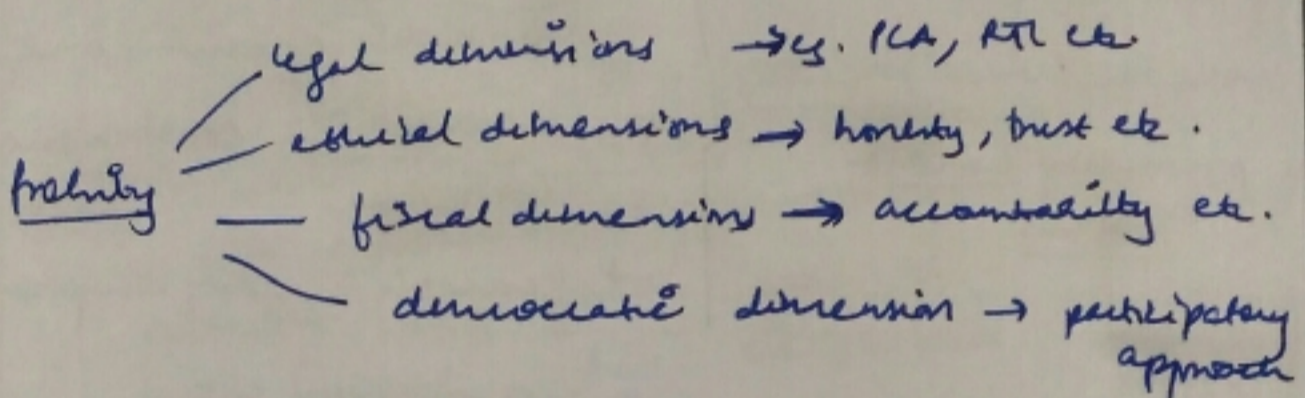 legal dimensions → eg. PCA, RTI etc.
ethical dimensions → honesty, trust etc.
Probity
fiscal dimensions → accountability etc.
democratic dimension → participatory
approach